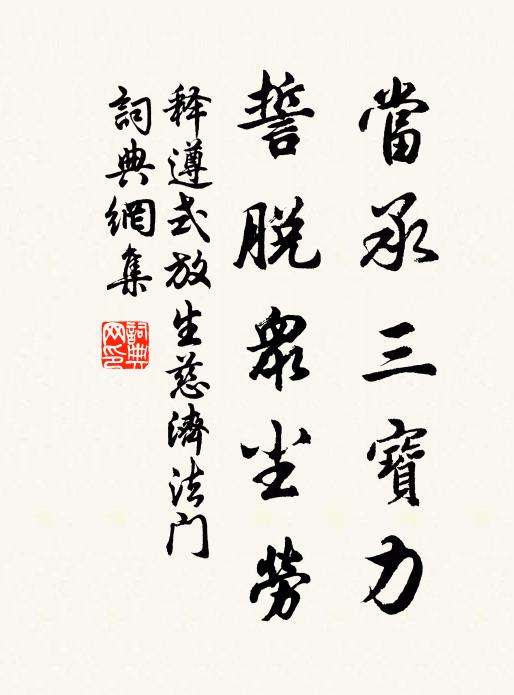 當承三寶力
誓脱衆尘勞
释遵式放生慈濟法门
詞典網集
詞典网印